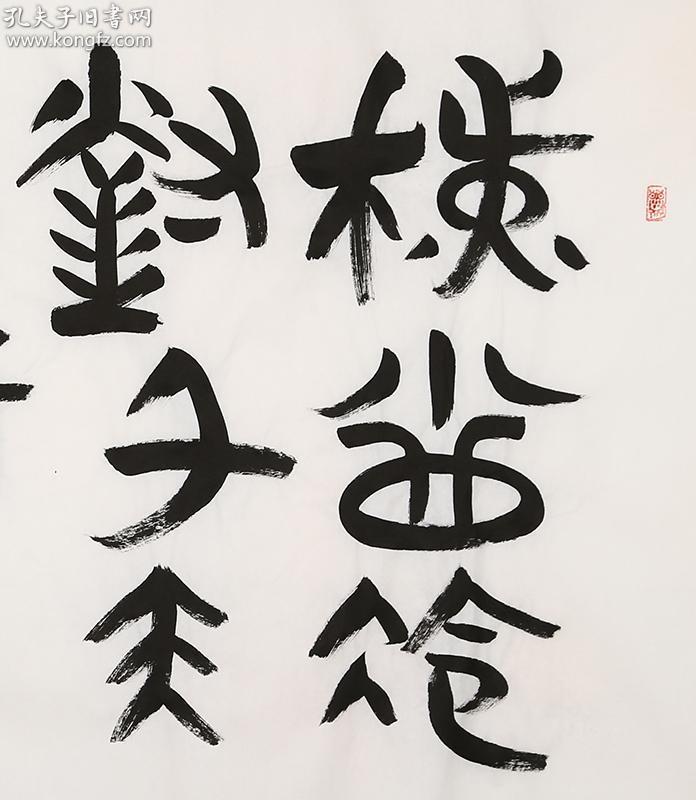 孔夫子旧书网
www.kongfz.com
橫眉冷
對千夫